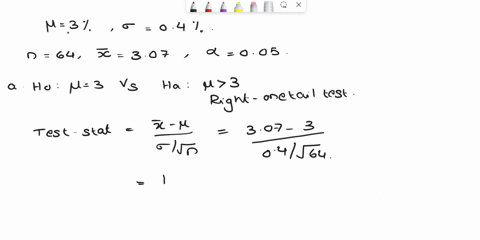 μ=3%, σ=0.4%.
n=64, x̄=3.07, α=0.05.
a. Ho: μ=3 Vs Ha: μ>3
Right-onetail test.
Test-stat = x̄-μ / σ/√n = 3.07-3 / 0.4/√64.
= 1